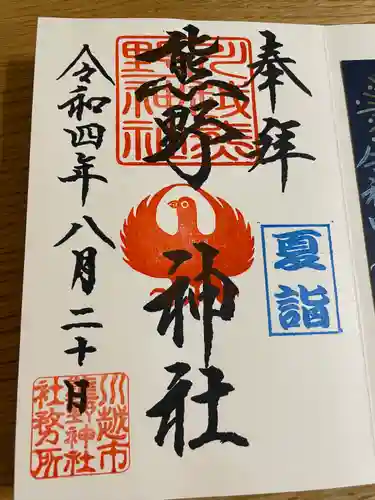 奉拝
夏詣
川越熊野神社
熊野神社
令和四年八月二十日
川越市
熊野神社
社務所